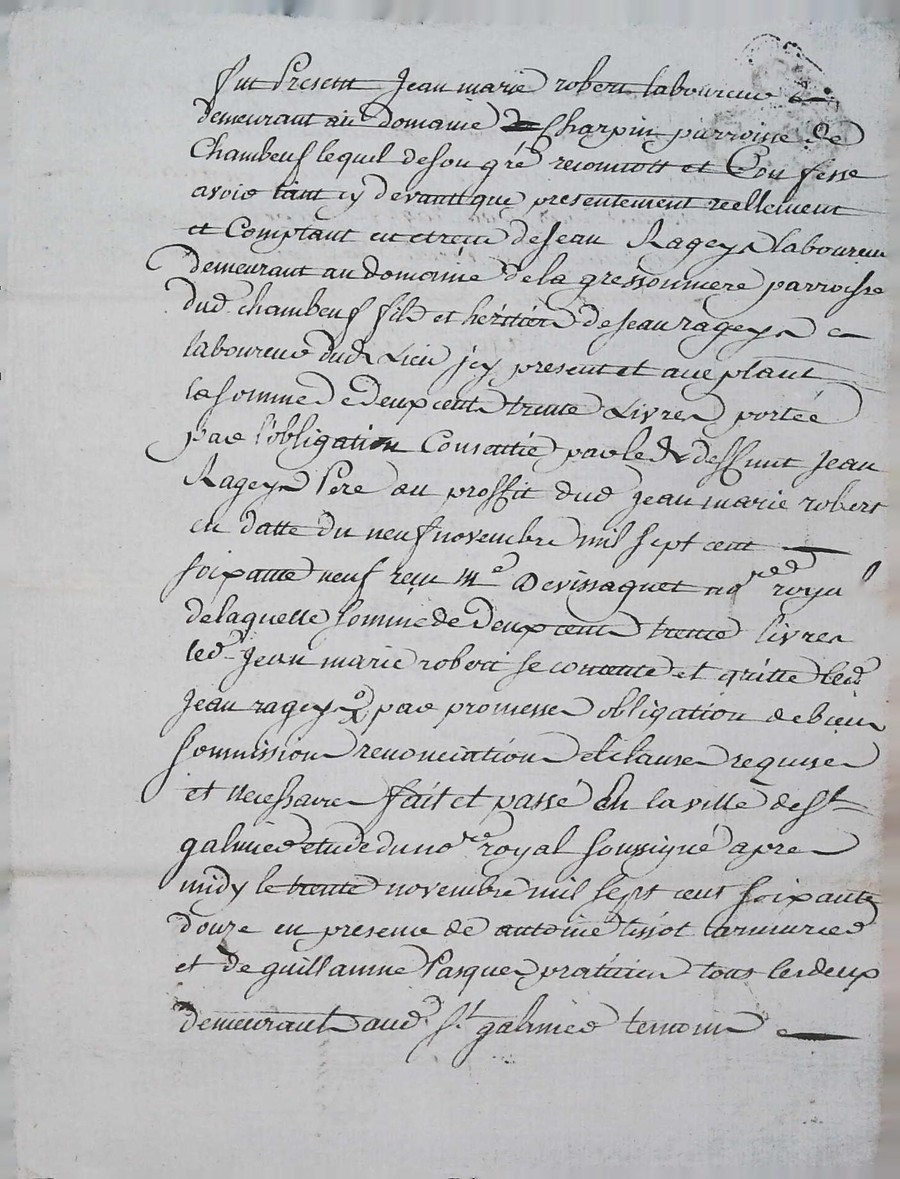 fut Present Jean marie robert laboureur
demeurant au domaine de Charpin parroisse de
Chambeuf lequel de son gré reconnoit et Confesse
avoir tant cy devant que presentement reellement
et Comptant eu et receu de Jean Rageys laboureur
demeurant au domaine de la gressonniere parroisse
dud. chambeuf fils et héritier de jean rageys
laboureur dud Lieu jcy present et aceptant
la somme de deux cent trente Livres portée
par l'obligation Consentie par led deffunt Jean
Rageys Pere au proffit dud jean marie robert
en datte du neuf novembre mil sept cent
soixante neuf reçu Me Devissaguet nore royal
de laquelle somme de deux cent trente livres
led. Jean marie robert se contente et quitte led
Jean rageys par promesses obligation de biens
sommissions renonciations et clauses requises
et necessaires fait et passé En la ville de St
galmier etude du nore royal soussigné apres
midy le trente novembre mil sept cent soixante
douze en presence de antoine tissot armurier
et de guillaume Pasquer praticien tous les deux
demeurants aud. St galmier temoins